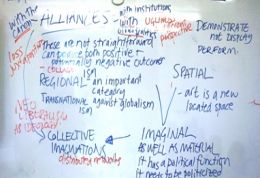 WITH THE
ALLIANCES - with institutions
- with
UGLINESS
perspective
DEMONSTRATE
not DISPLAY
PERFORM.
loss
these are not straightforward
can have both positive +
potentially negative outcome
- COLLAGE
ism
REGIONAL - an important
category
TRANSNATIONAL against globalism
ism
SPATIAL
- art is a new
located space
NEO
LIBERALISM
AS IDEOLOGY
COLLECTIVE
IMAGINATIONS
distributed networks
IMAGINAL
AS WELL AS MATERIAL
It has a political function
It needs to be politicized